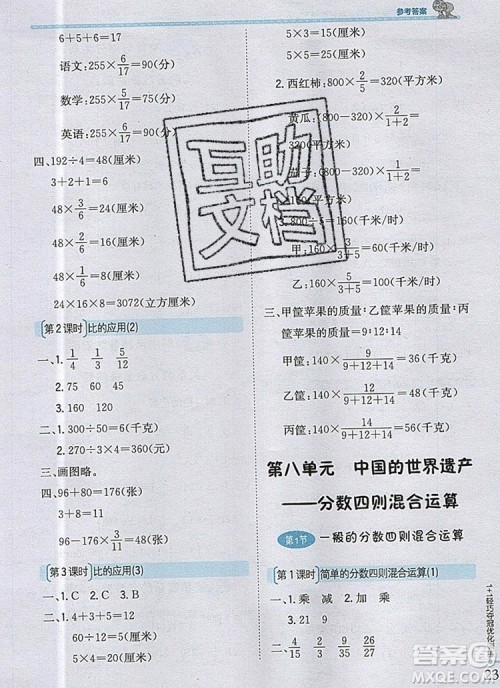 参考答案
6+5+6=17
语文:255×6/17=90(分)
数学:255×5/17=75(分)
英语:255×6/17=90(分)
四、192÷4=48(厘米)
3+2+1=6
48×3/6=24(厘米)
48×2/6=16(厘米)
48×1/6=8(厘米)
24×16×8=3072(立方厘米)
第2课时 比的应用(2)
一、1. 1/4 3/4 5/12
2. 75 60 45
3. 160 120
二、1. 300÷50=6(千克)
2. 270÷3×4=360(厘米)
三、画图略。
四、96+80=176(张)
96-176×3/8+3=48(张)
第3课时 比的应用(3)
一、1. C 2. C 3. B
二、1. 2×4+3+5=12
60÷12=5(厘米)
5×4=20(厘米)
5×3=15(厘米)
2. 西红柿:800×2/5=320(平方米)
黄瓜:
×2/1+2=
320(平方米)
320(平方米)
5=160(千米/时)
甲:160×3/3+5=60(千米/时)
乙:160×5/3+5=100(千米/时)
三、甲筐苹果的质量:乙筐苹果的质量:丙
筐苹果的质量=9:12:14
甲筐:140×9/9+12+14=36(千克)
乙筐:140×12/9+12+14=48(千克)
丙筐:140×14/9+12+14=56(千克)
第八单元 中国的世界遗产
——分数四则混合运算
第1节 一般的分数四则混合运算
第1课时 简单的分数四则混合运算(1)
一、1. 乘 减 2. 加 乘
3. 21 9
二、4/15 7/9 14
1+1轻巧夺冠优化
23
互助文档
答案圈
MXQE.COM